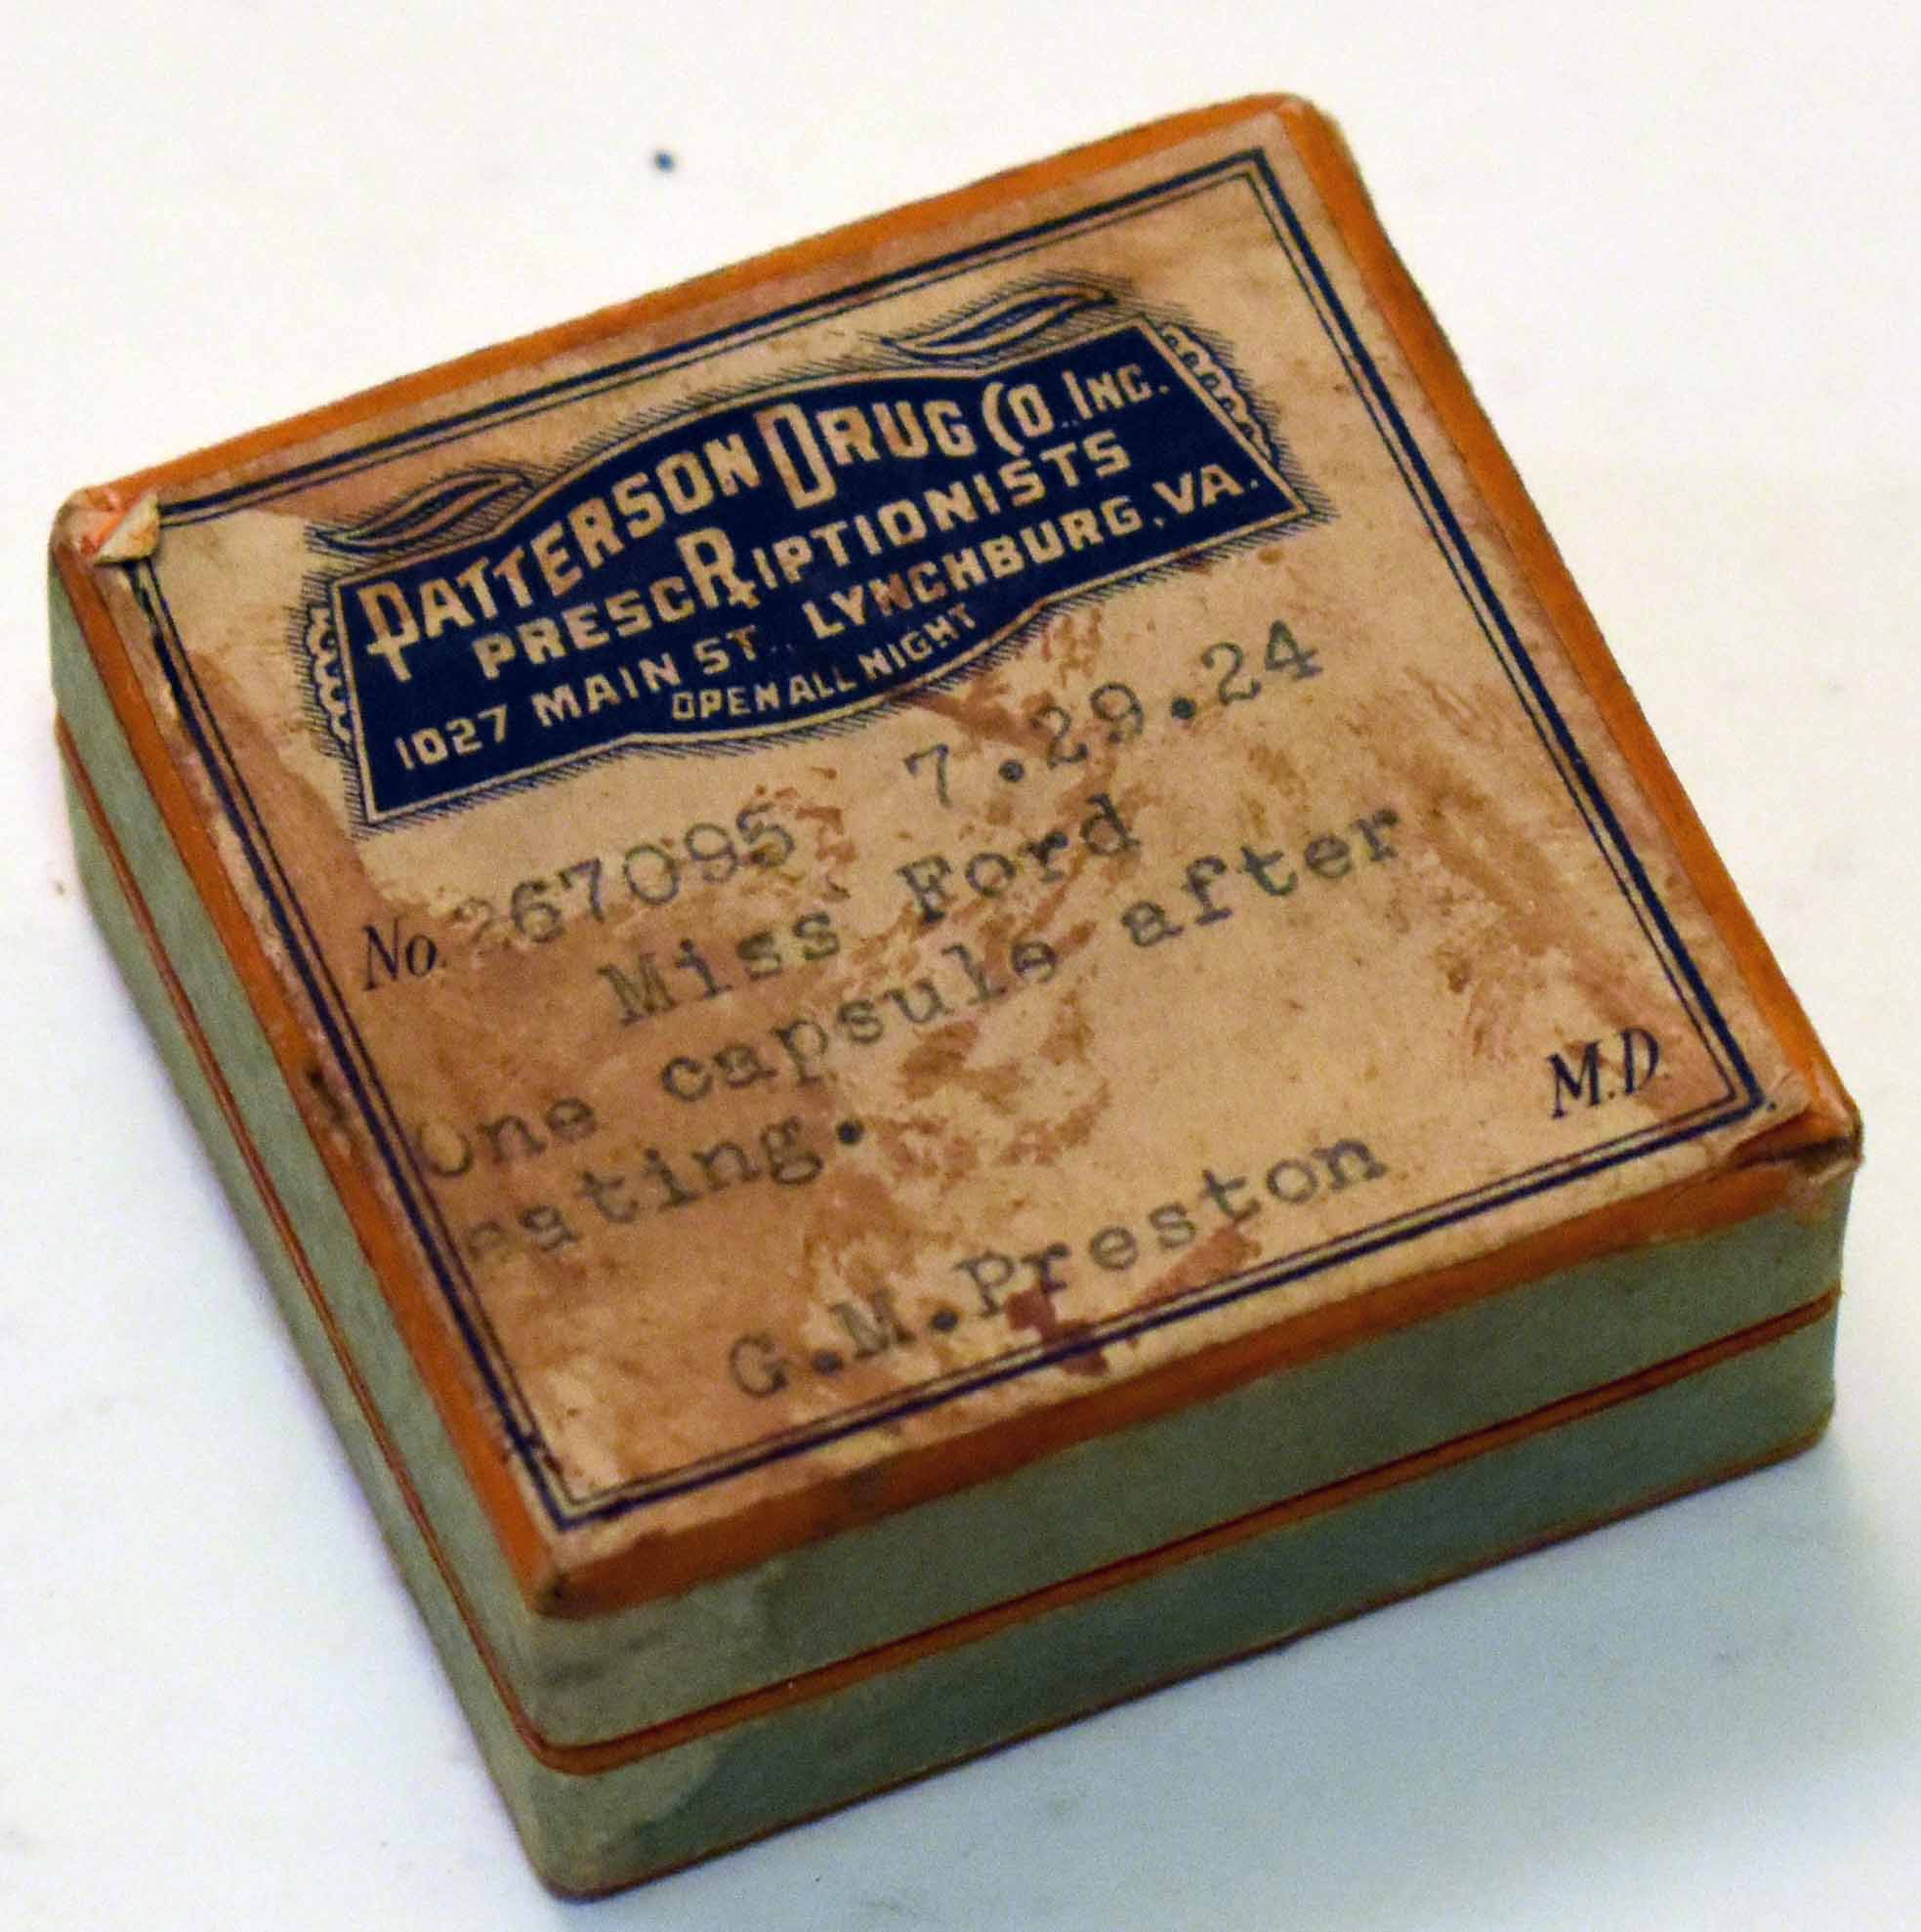 PATTERSON DRUG CO. INC.
PRESCRIPTIONISTS
1027 MAIN ST., LYNCHBURG, VA.
OPEN ALL NIGHT
No. 267095 7.29.24
Miss Ford
One capsule after
eating.
M.D.
G.M.Preston